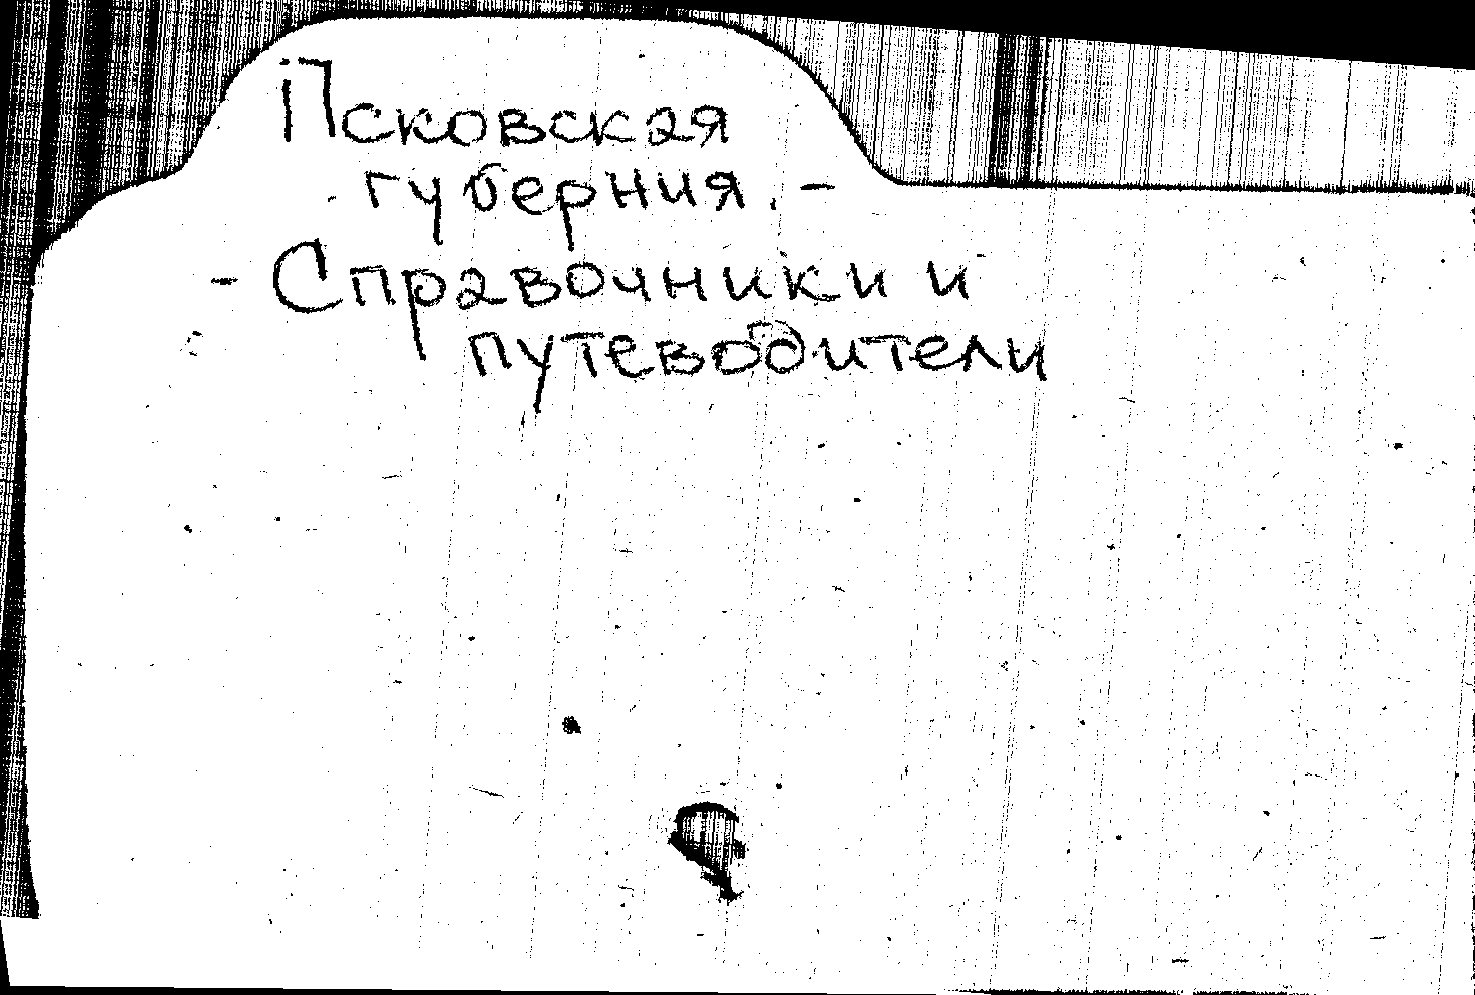 Псковская
губерния. -
- Справочники и
путеводители